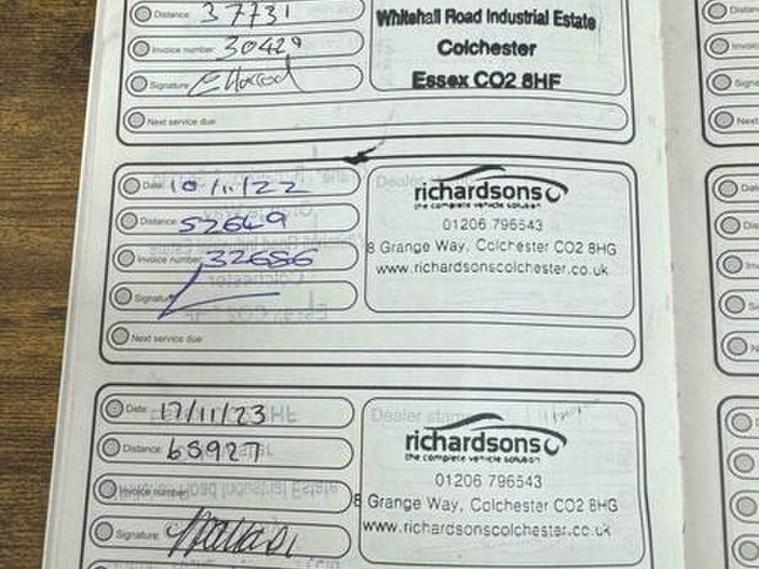 Distance: 37731
Invoice number: 30429
Signature:
Next service due
Whitehall Road Industrial Estate
Colchester
Essex CO2 8HF
Date: 10/11/22
Distance: 52649
Invoice number: 32686
Signature:
Next service due
Dealer
richardsons
the complete vehicle solution
01206 796543
8 Grange Way, Colchester CO2 8HG
www.richardsonscolchester.co.uk
Date: 17/11/23
Distance: 65927
Invoice number:
Signature:
Dealer stamp
richardsons
the complete vehicle solution
01206 796543
8 Grange Way, Colchester CO2 8HG
www.richardsonscolchester.co.uk